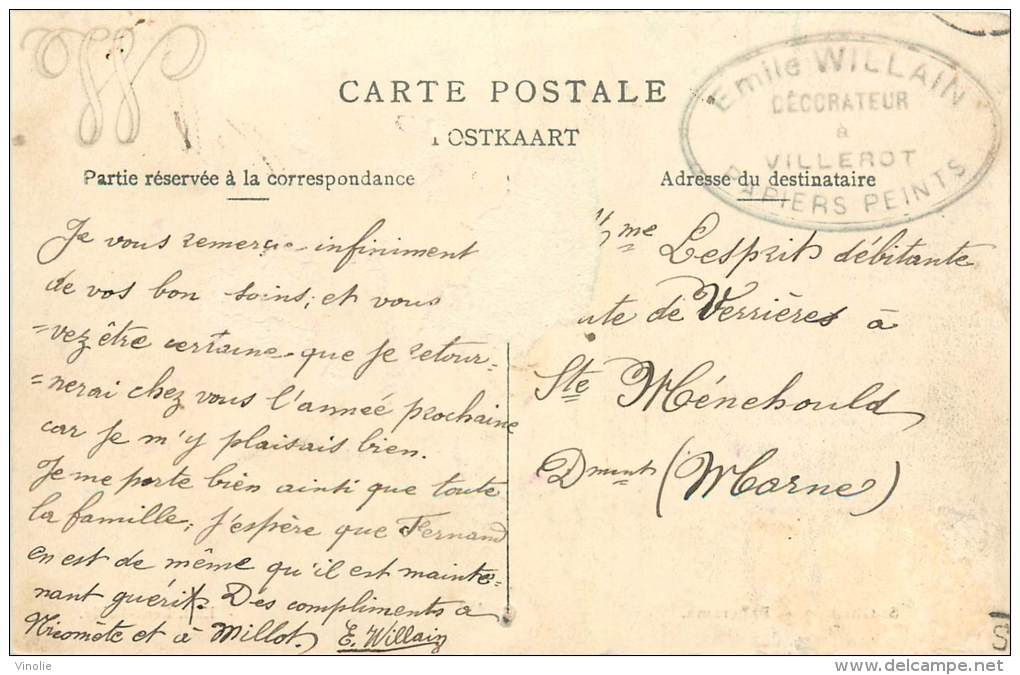 Emile WILLAIN
DÉCORATEUR
à
VILLEROT
PAPIERS PEINTS
CARTE POSTALE
POSTKAART
Partie réservée à la correspondance
Adresse du destinataire
Je vous remercie infiniment
de vos bon soins; et vous
=vez être certaine que je retour-
=nerai chez vous l'année prochaine
car je m'y plaisais bien.
Je me porte bien ainsi que toute
la famille; j'espère que Fernand
en est de même qu'il est mainte=
nant guérit. Des compliments a
Nicomète et à Millot. E. Willain
Mme Lesprit débitante
ute de Verrières à
Ste Ménehould
Dment (Marne)
Vinolie
delcampe.net